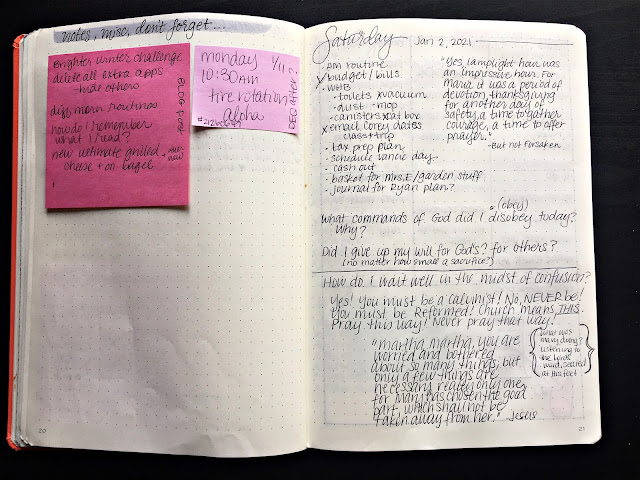 notes, misc, don't forget...
Brighter winter challenge
delete all extra apps
hide others
BLOG post
diff morn routines
how do I remember
what I read?
new ultimate grilled
cheese + on bagel
monday 1/11
10:30AM
tire rotation
alpha
DEQ after?
Saturday Jan 2, 2021
AM routine
x budget/bills
WHB
toilets x vacuum
dust mop
canisters x cat box
x email Corey dates
class + trip
tax prep plan
schedule vancie day
cash out
basket for Mrs. E/garden stuff
journal for Ryan plan?
"Yes, lamplight hour was
an impressive hour. For
Maria it was a period of
devotion, thanksgiving
for another day of
safety, a time to gather
courage, a time to offer
prayer."
-But not Forsaken
(obey)
What commands of God did I disobey today?
Why?
Did I give up my will for God's? for others?
(no matter how small a sacrifice?)
How do I wait well in the midst of confusion?
Yes! You must be a calvinist! No, NEVER be!
You must be Reformed! Church means THIS.
Pray this way! Never pray that way.
"martha, martha, you are
worried and bothered
about so many things; but
only a few things are
necessary, really only one,
for Mary has chosen the good
part, which shall not be
taken away from her." -Jesus
What was
mary doing?
Listening to
the Lord's
word, seated
at his feet
20
21